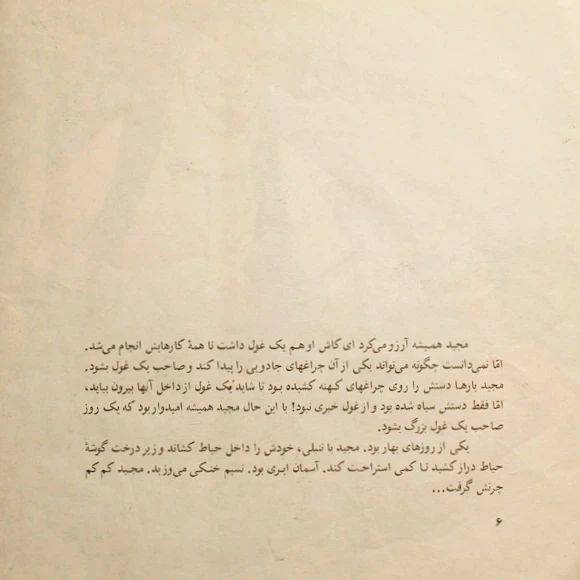 مجید همیشه آرزو می‌کرد ای کاش او هم یک غول داشت تا همهٔ کارهایش انجام می‌شد.
امّا نمی‌دانست چگونه می‌تواند یکی از آن چراغهای جادویی را پیدا کند و صاحب یک غول بشود.
مجید بارها دستش را روی چراغهای کهنه کشیده بود تا شاید یک غول از داخل آنها بیرون بیاید،
امّا فقط دستش سیاه شده بود و از غول خبری نبود! با این حال مجید همیشه امیدوار بود که یک روز
صاحب یک غول بزرگ بشود.
یکی از روزهای بهار بود. مجید با تنبلی، خودش را داخل حیاط کشاند و زیر درخت گوشهٔ
حیاط دراز کشید تا کمی استراحت کند. آسمان ابری بود. نسیم خنکی می‌وزید. مجید کم کم
چرتش گرفت...
۶